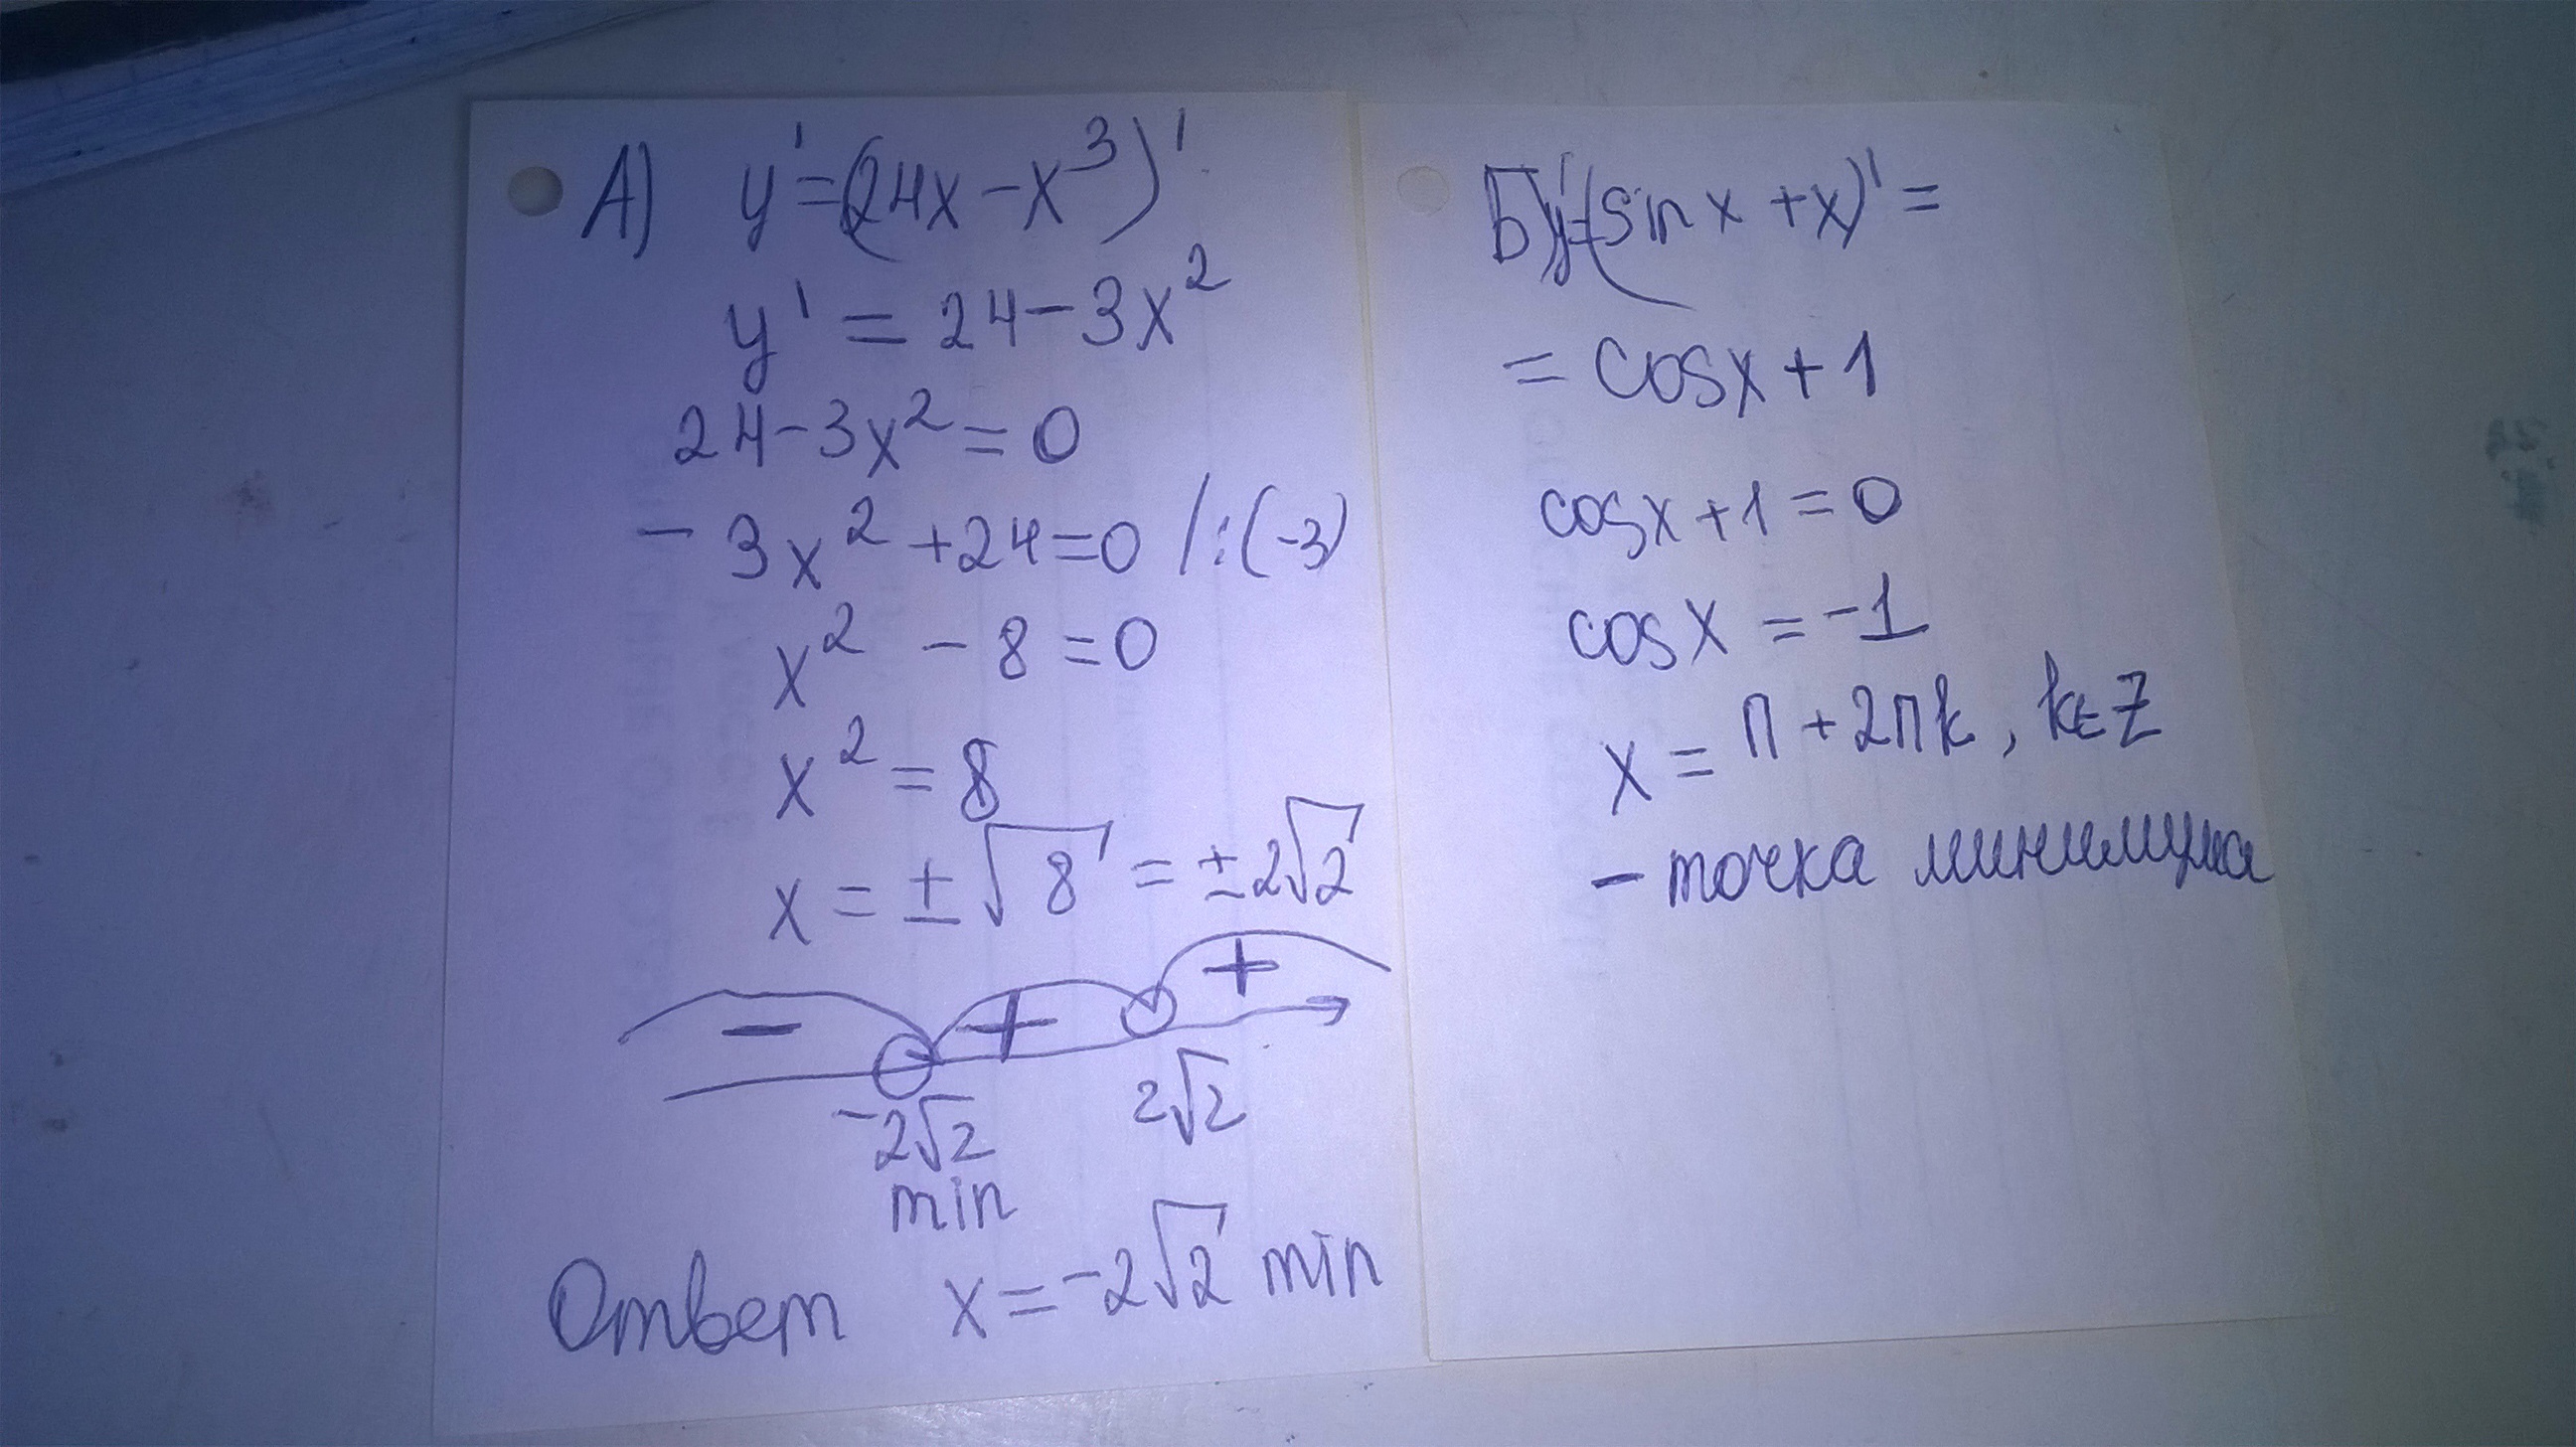 А) y' = (24x - x³)'
y' = 24 - 3x²
24 - 3x² = 0
- 3x² + 24 = 0 /:(-3)
x² - 8 = 0
x² = 8
x = ± √8 = ± 2√2
- + +
-2√2 2√2
min
Ответ x = -2√2 min
Б) y' = (sin x + x)' =
= cosx + 1
cosx + 1 = 0
cosx = -1
x = π + 2πk, k∈Z
- точка минимума